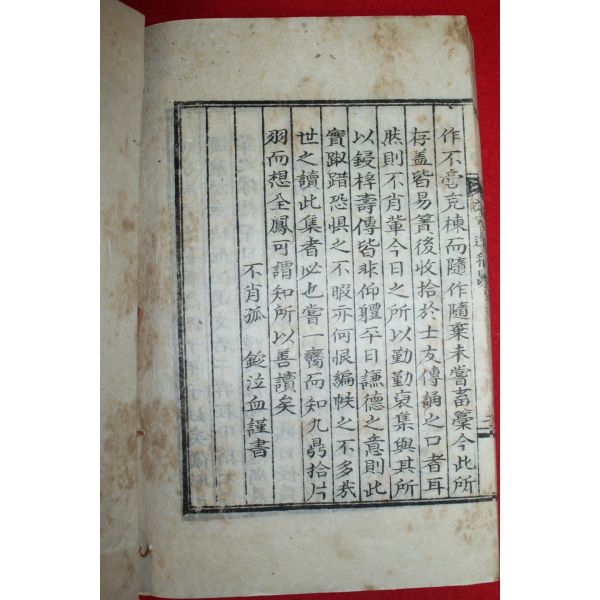 作不啻充棟而隨作隨棄未嘗畜藁今此所
存盖皆易簀後收拾於士友傳誦之口者耳
然則不肖輩今日之所以勤勤裒集與其所
以鋟梓壽傳皆非仰軆平日謙德之意則此
實踧踖恐惧之不暇亦何恨編帙之不多哉
世之讀此集者必也嘗一臠而知九鼎拾片
羽而想全鳳可謂知所以善讀矣
不肖孤 錠泣血謹書